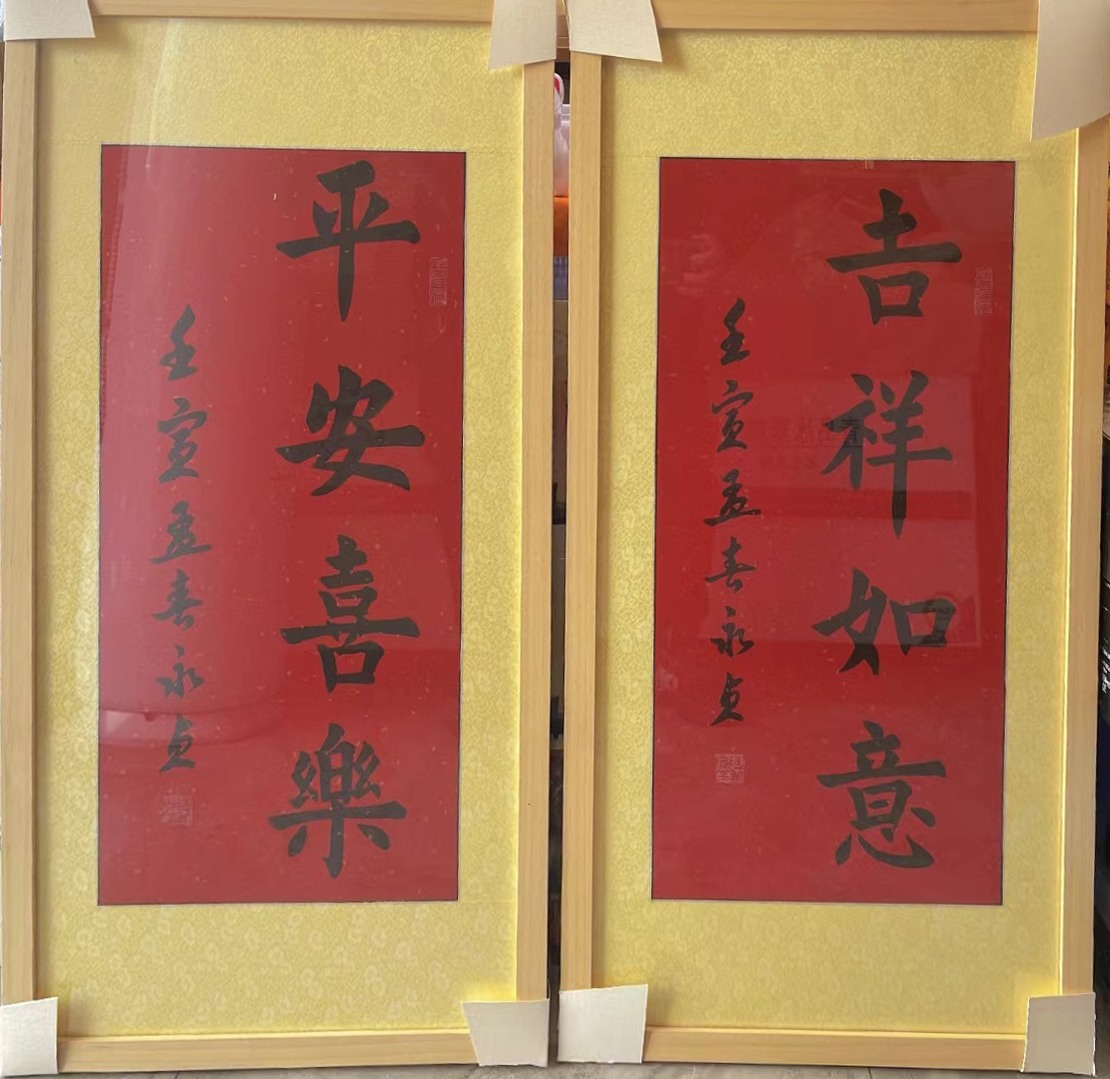 平安喜樂
壬寅孟春永贞
吉祥如意
壬寅孟春永贞